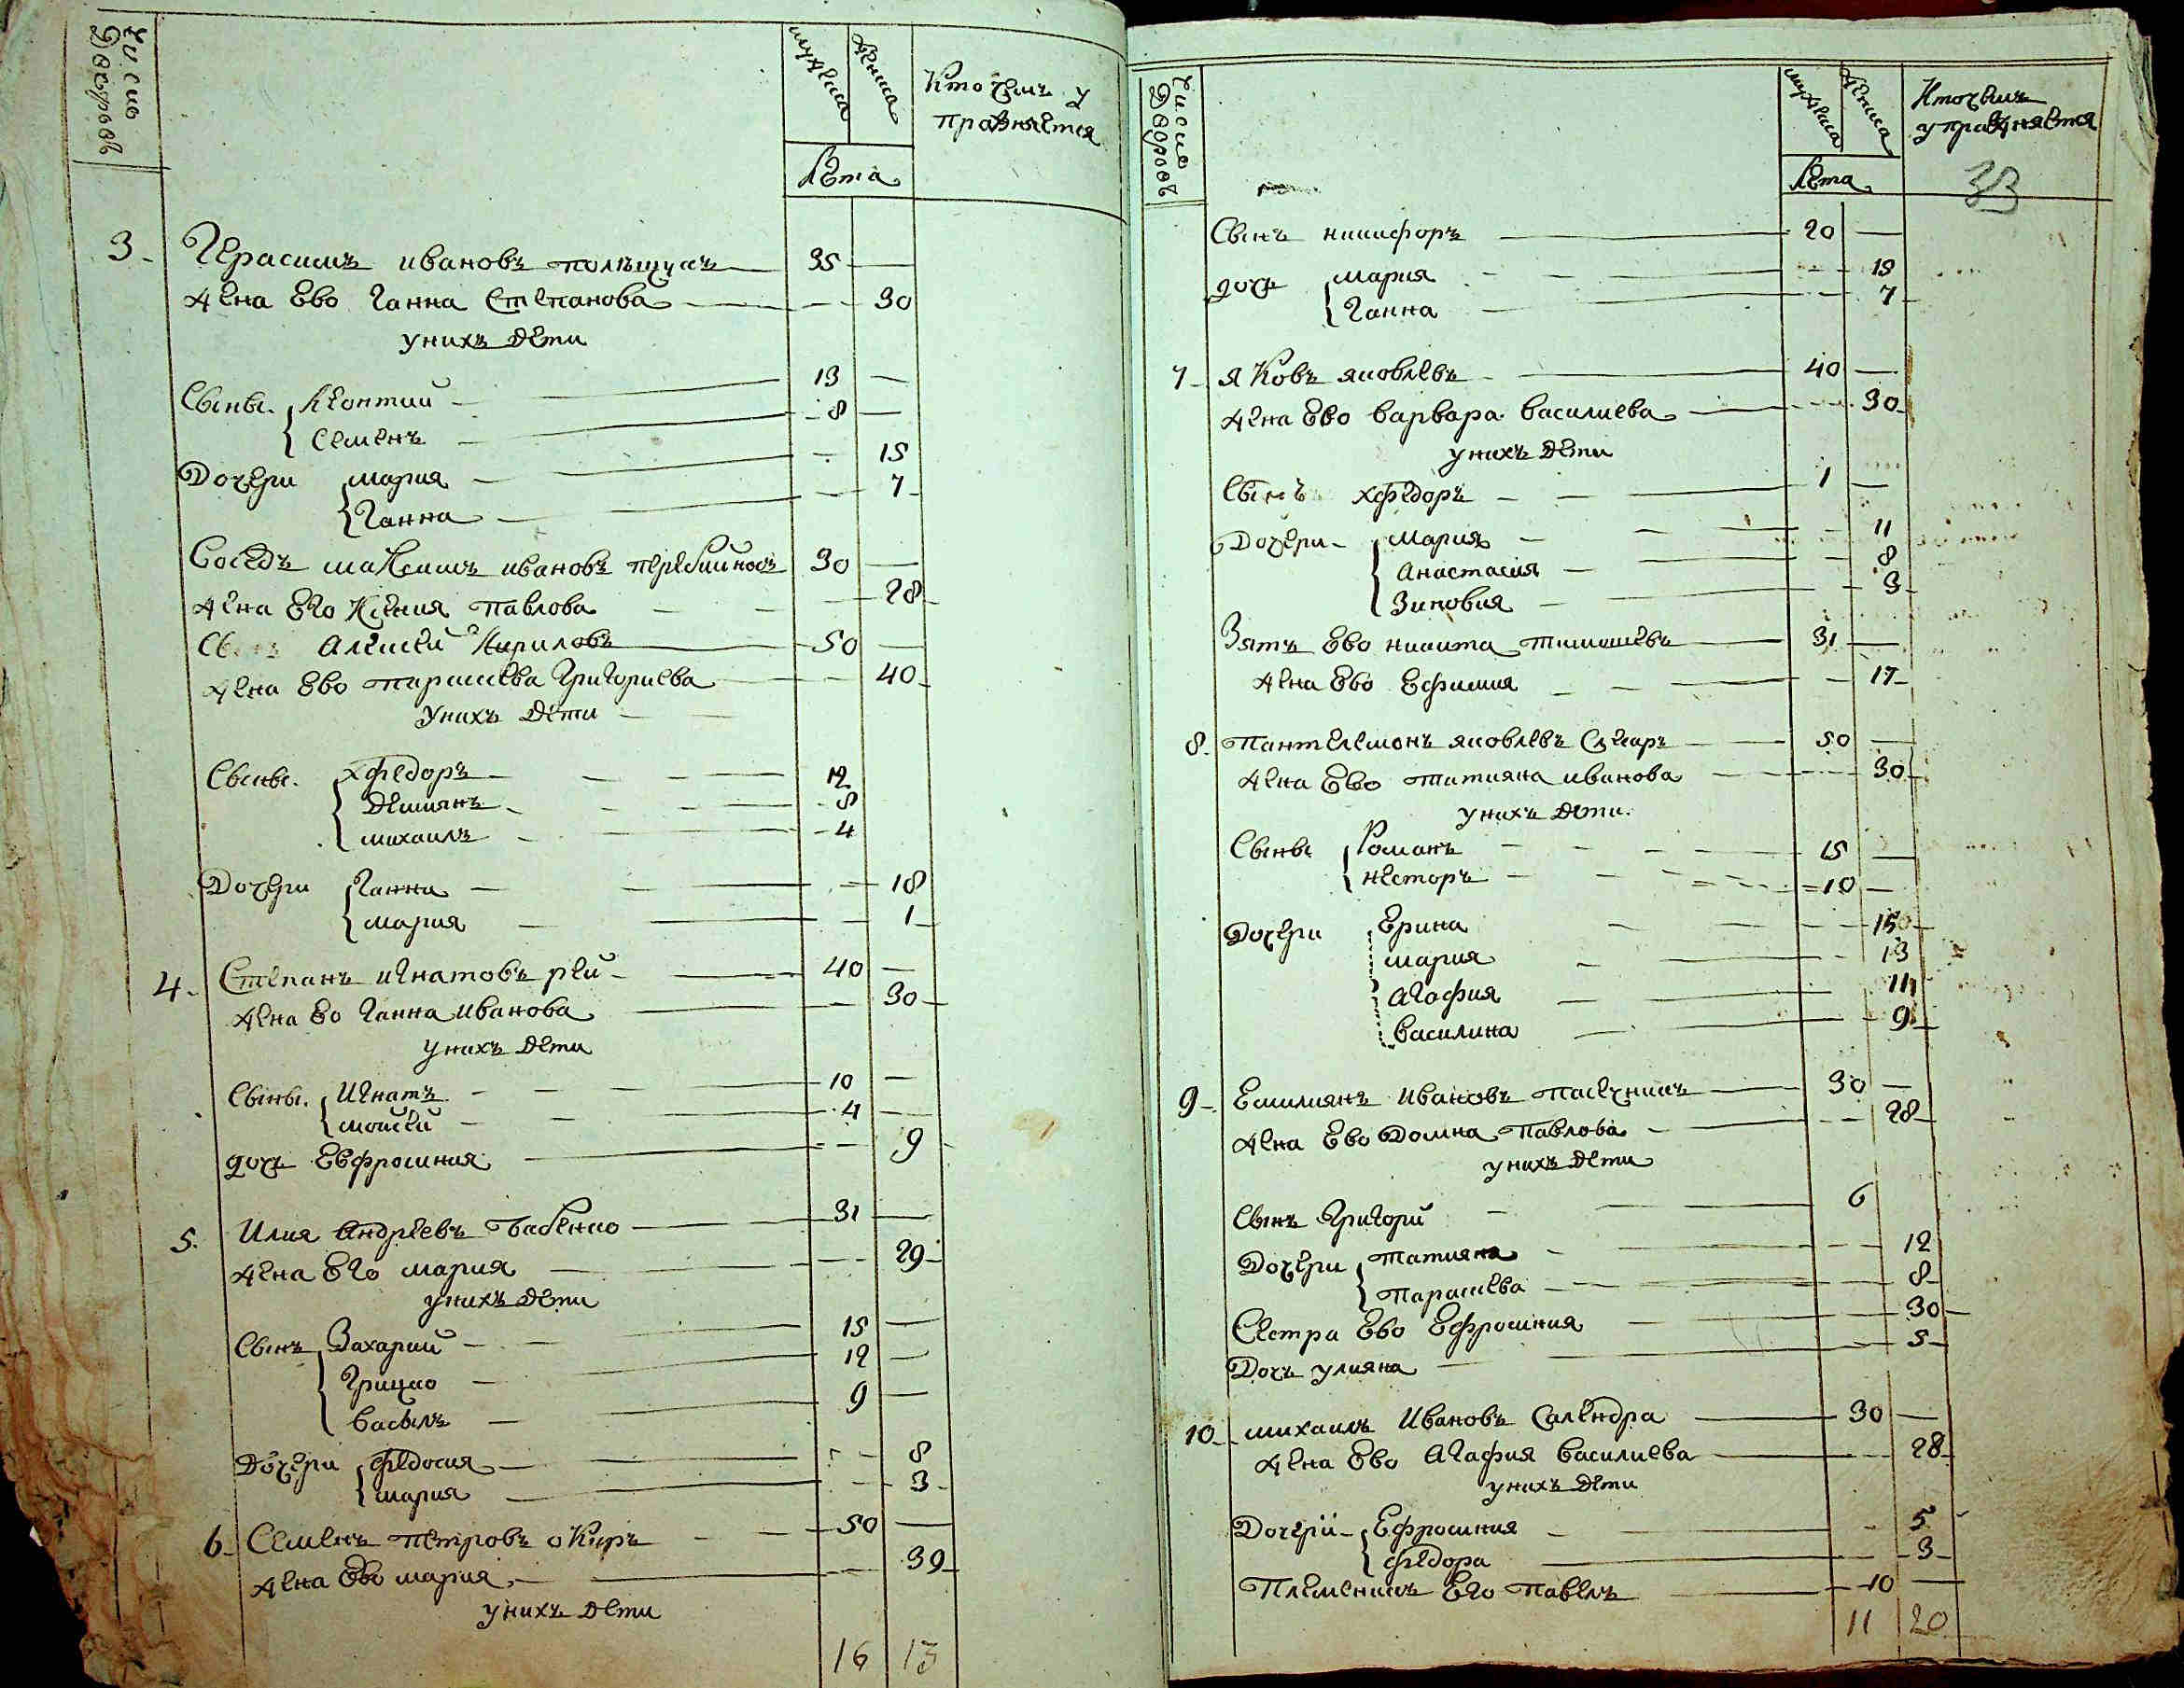 Число Дворовъ
мужеска
женска
Кто чемъ у
пражняется
Лета
3. Герасимъ ивановъ полѣщукъ 35
жена Ево Ганна Степанова 30
унихъ Дети
Сыны Леонтий 13
Семенъ 8
Дочери мария 15
Ганна 7
Соседъ максимъ ивановъ 30
жена Его Ксения Павлова 28
Алексей Кириловъ 50
жена Ево параскева Григориева 40
Унихъ Дети
Сыны хфедоръ 12
Демиянъ 8
михаилъ 4
Дочери Ганна 18
мария 1
4. Степанъ игнатовъ рей 40
жена Ео Ганна иванова 30
унихъ Дети
Сыны Игнатъ 10
моисей 4
дочь Евфросиния 9
5. Илия Андреевъ бабенко 31
жена Его мария 29
унихъ Дети
Сынъ Захарий 15
Грицко 12
василъ 9
Дочери федосия 8
мария 3
6. Семенъ петровъ 50
жена Ево мария 39
унихъ Дети
16 13
Число Дворовъ
мужеска
женска
Кто чемъ
упражняется
Лета
33
Сынъ никифоръ 20
дочь мария 15
Ганна 7
7. яковъ яковлевъ 40
жена Ево варвара василиева 30
унихъ Дети
Сынъ хфедоръ 1
Дочери мария 11
анастасия 8
Зиновия 3
Зять Ево никита тимошевъ 31
жена Ево Ефимия 17
8. Пантелемонъ яковлевъ 50
жена Ево татияна иванова 30
унихъ Дети
Сыны Романъ 15
несторъ 10
Дочери Ерина 15
мария 13
агафия 11
василина 9
9. Емилиянъ Ивановъ пасечникъ 30
жена Ево Домна Павлова 28
унихъ Дети
Сынъ Григори 6
Дочери татияна 12
параскева 8
Сестра Ево Ефросиния 30
Дочь улияна 5
10. михаилъ Ивановъ Салендра 30
жена Ево Агафия василиева 28
унихъ Дети
Дочери Ефросиния 5
федора 3
Племеникъ Его павелъ 10
11 20